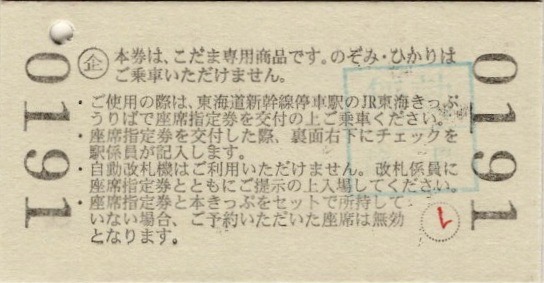 企 本券は、こだま専用商品です。のぞみ・ひかりは
ご乗車いただけません。
・ご使用の際は、東海道新幹線停車駅のJR東海きっぷ
うりばで座席指定券を交付の上ご乗車ください。
・座席指定券を交付した際、裏面右下にチェックを
駅係員が記入します。
・自動改札機はご利用いただけません。改札係員に
座席指定券とともにご提示の上入場してください。
・座席指定券と本きっぷをセットで所持して
いない場合、ご予約いただいた座席は無効
となります。
0191
0191